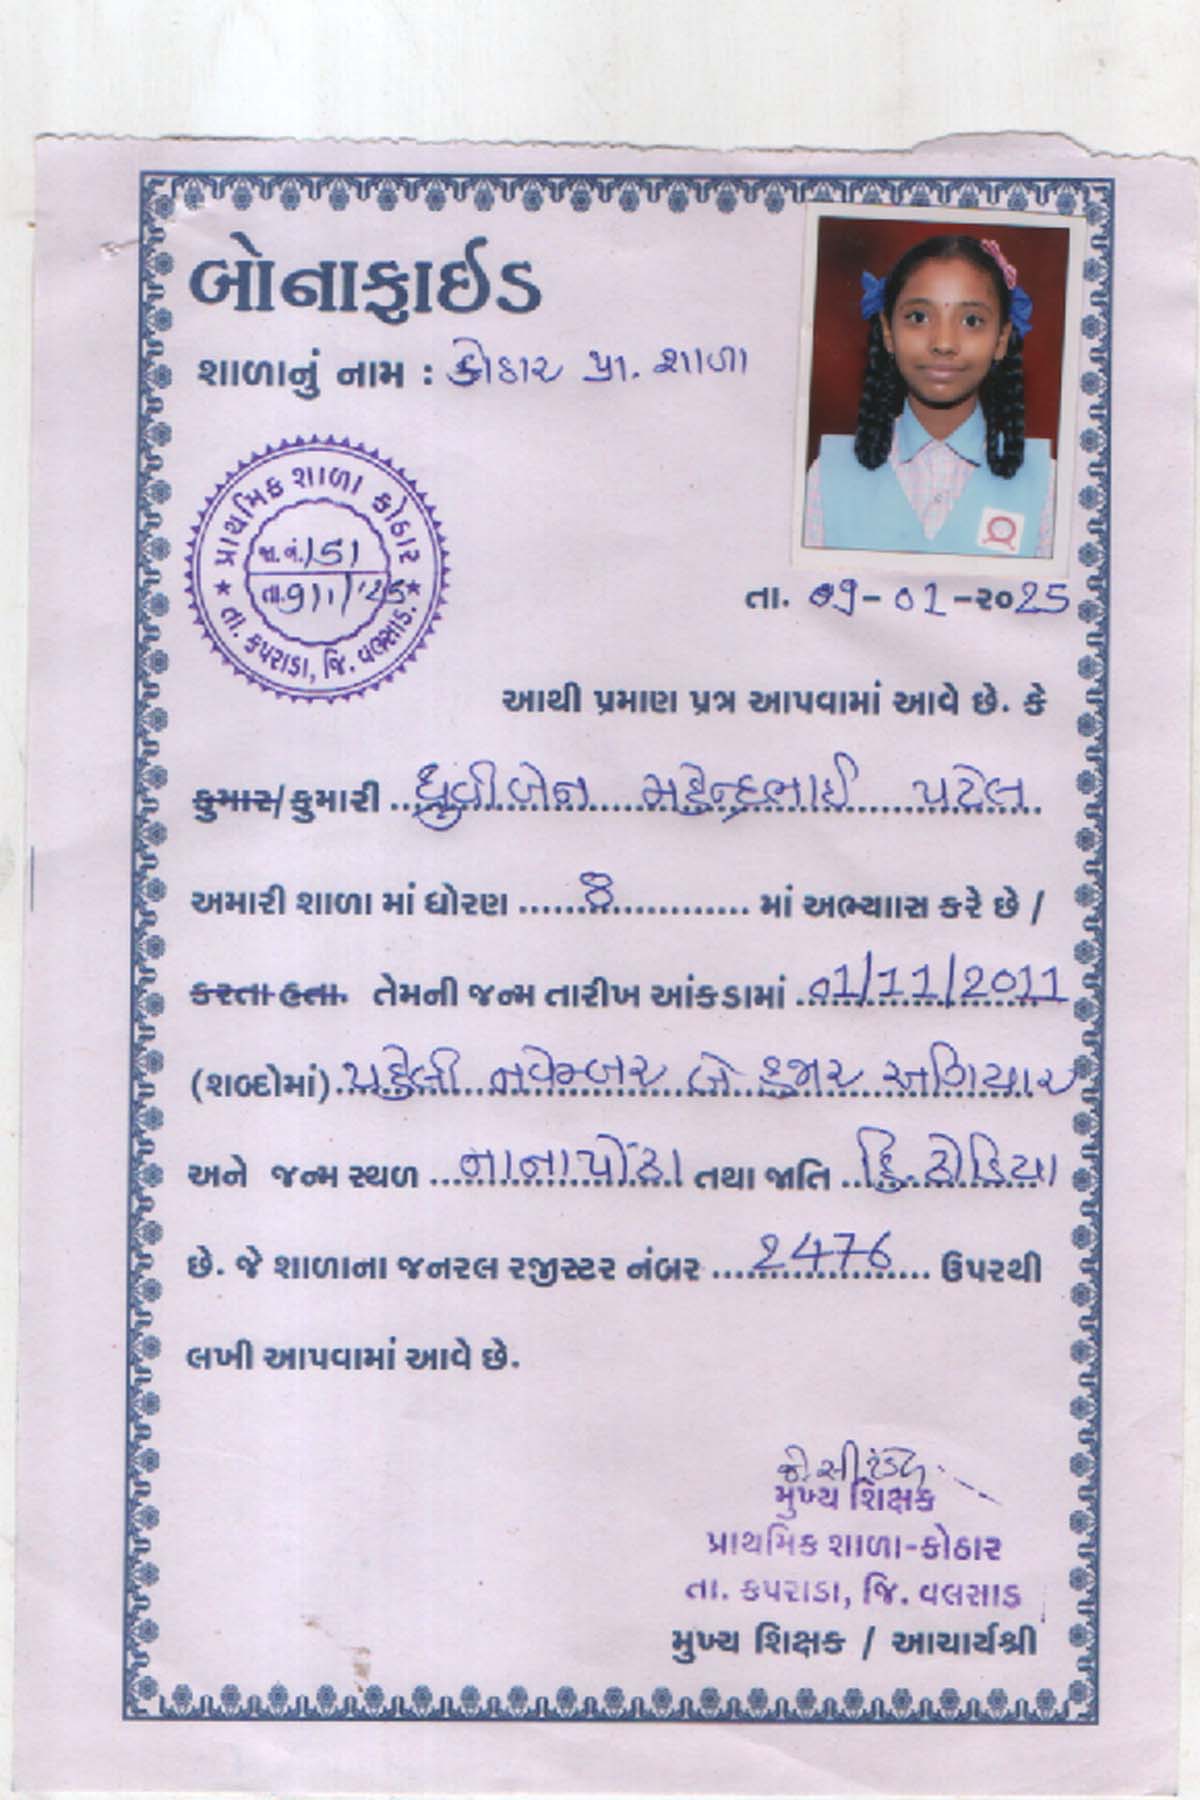 બોનાફાઈડ
શાળાનું નામ : કોઠાર પ્રા. શાળા
પ્રાથમિક શાળા કોઠાર
જા.નં. 151
તા. 9/1/'25
★ તા. કપરાડા, જિ. વલસાડ. ★
તા. 09-01-૨૦25
આથી પ્રમાણ પત્ર આપવામાં આવે છે. કે
કુમાર/કુમારી ધ્રુવીબેન મહેન્દ્રભાઈ પટેલ
અમારી શાળા માં ધોરણ 8 માં અભ્યાાસ કરે છે /
કરતા હતા. તેમની જન્મ તારીખ આંકડામાં 01/11/2011
(શબ્દોમાં) પહેલી નવેમ્બર બે હજાર અગિયાર
અને જન્મ સ્થળ નાનાપોંઢા તથા જાતિ હિં.ઢોડિયા
છે. જે શાળાના જનરલ રજીસ્ટર નંબર 2476 ઉપરથી
લખી આપવામાં આવે છે.
મુખ્ય શિક્ષક
પ્રાથમિક શાળા-કોઠાર
તા. કપરાડા, જિ. વલસાડ
મુખ્ય શિક્ષક / આચાર્યશ્રી